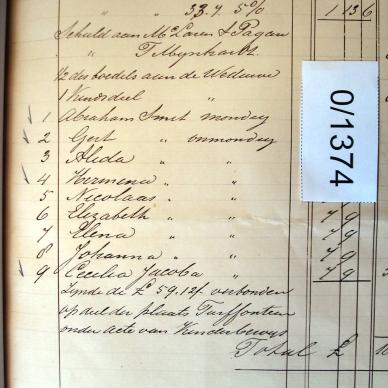 " " 33.7. 5% 1 13 6
Schuld aan McLaren & Pagan
" T Mynhardt.
1/2 des boedels aan de Weduwe
1 Kindsdeel "
1 Abraham Smit mondig
2 Gert " onmondig
3 Alida " "
4 Hermina " "
5 Nicolaas " "
6 Elizabeth " " 79
7 Elena " " 79
8 Johanna " " 79
9 Cecilia Jacoba " 79
Zynde de £ 59.12/- verbonden
op deel der plaats Turffontein
onder acte van Kinderbewys
Total £
0/1374